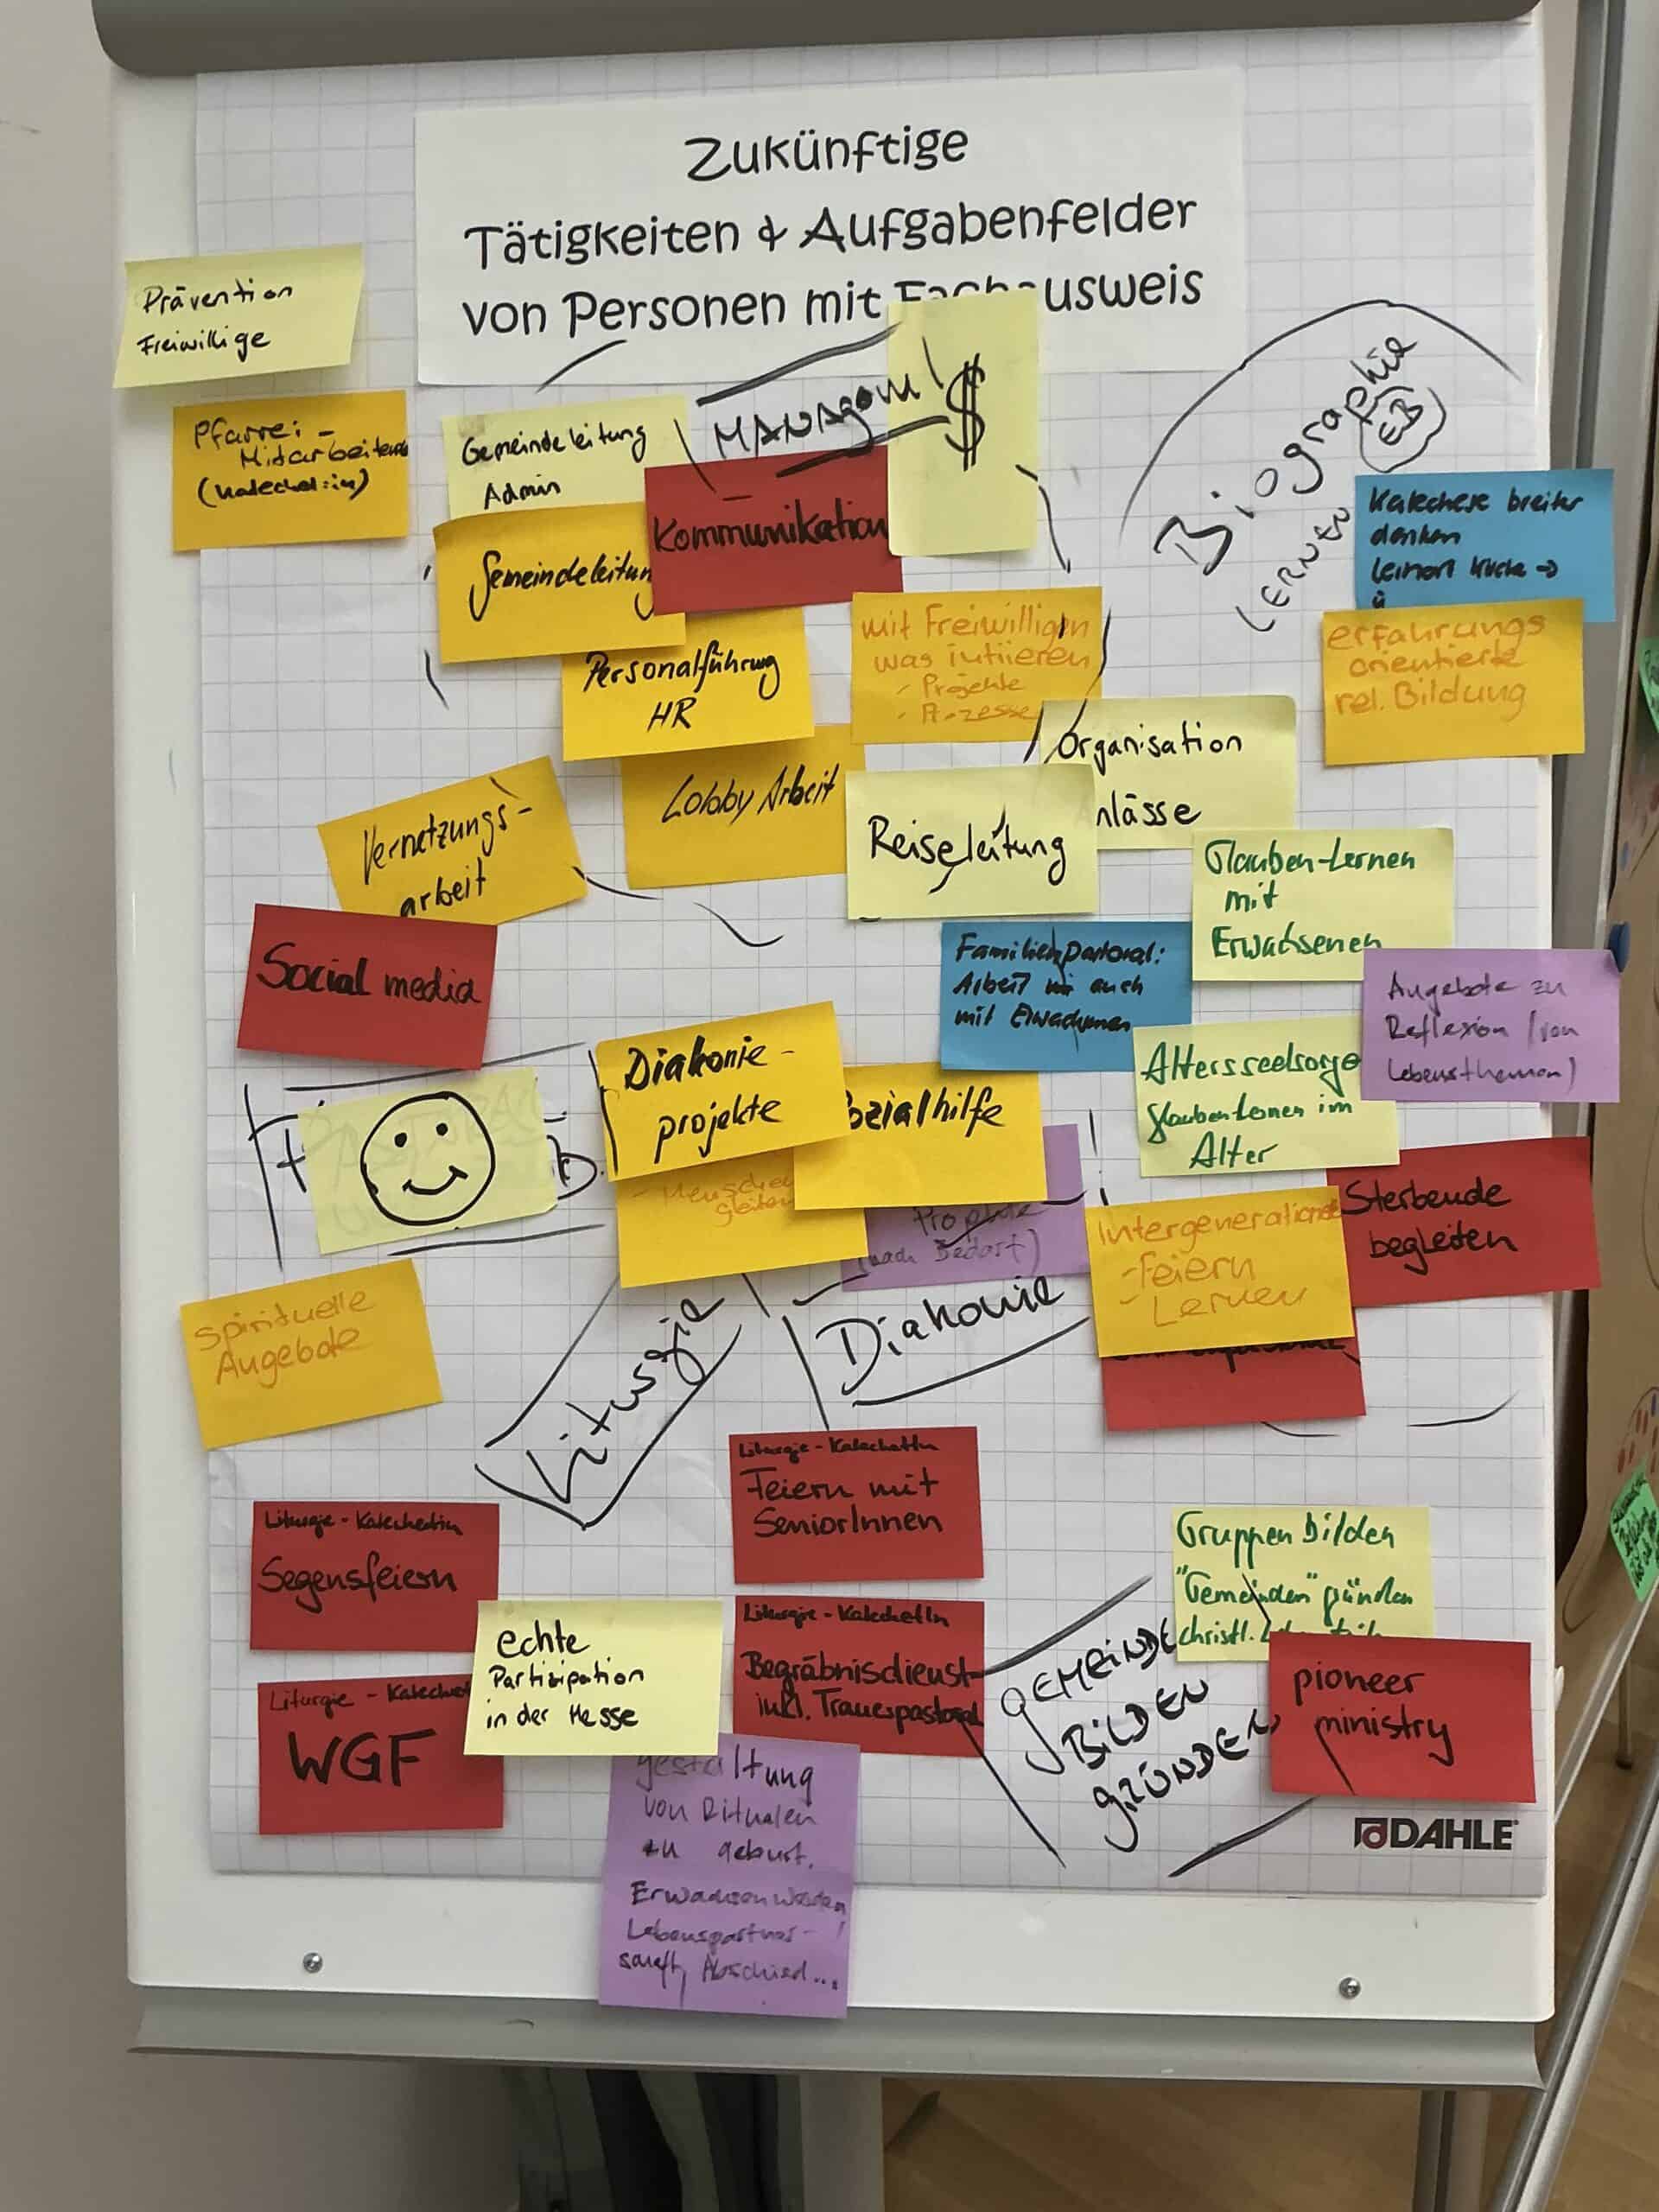 Zukünftige
Tätigkeiten & Aufgabenfelder
von Personen mit Fachausweis
Prävention
Freiwillige
Pfarrei-
Mitarbeitende
(Katechet:in)
Gemeindeleitung
Admin
MANAGEM
$
Kommunikation
Gemeindeleitung
Personalführung
HR
Lobby Arbeit
Vernetzungs-
arbeit
Social media
mit Freiwilligen
was initiieren
- Projekte
- Prozesse
Organisation
Anlässe
Reiseleitung
Biographie
EB
LERNEN
Katechese breiter
denken
erfahrungs
orientierte
rel. Bildung
Glauben-Lernen
mit
Erwachsenen
Familienpastoral:
Arbeit auch
mit Erwachsenen
Angebote zu
Reflexion (von
Lebensthemen)
Altersseelsorge
Glauben lernen im
Alter
Sterbende
begleiten
Intergenerationell
- Feiern
- Lernen
Diakonie-
projekte
Sozialhilfe
- Menschen
Projekte
(nach Bedarf)
Diakonie
Spirituelle
Angebote
Liturgie
Liturgie - KatechetIn
Feiern mit
SeniorInnen
Liturgie - Katechetin
Segensfeiern
Liturgie - KatechetIn
Begräbnisdienst
inkl. Trauerpastoral
Liturgie - Katechet
WGF
echte
Partizipation
in der Messe
gestaltung
von Ritualen
zu geburt,
Erwachsen werden,
Lebenspartner-
schaft, Abschied...
Gruppen bilden
"Gemeinden" gründen
christl.
GEMEINDE
BILDEN
GRÜNDEN
pioneer
ministry
DAHLE